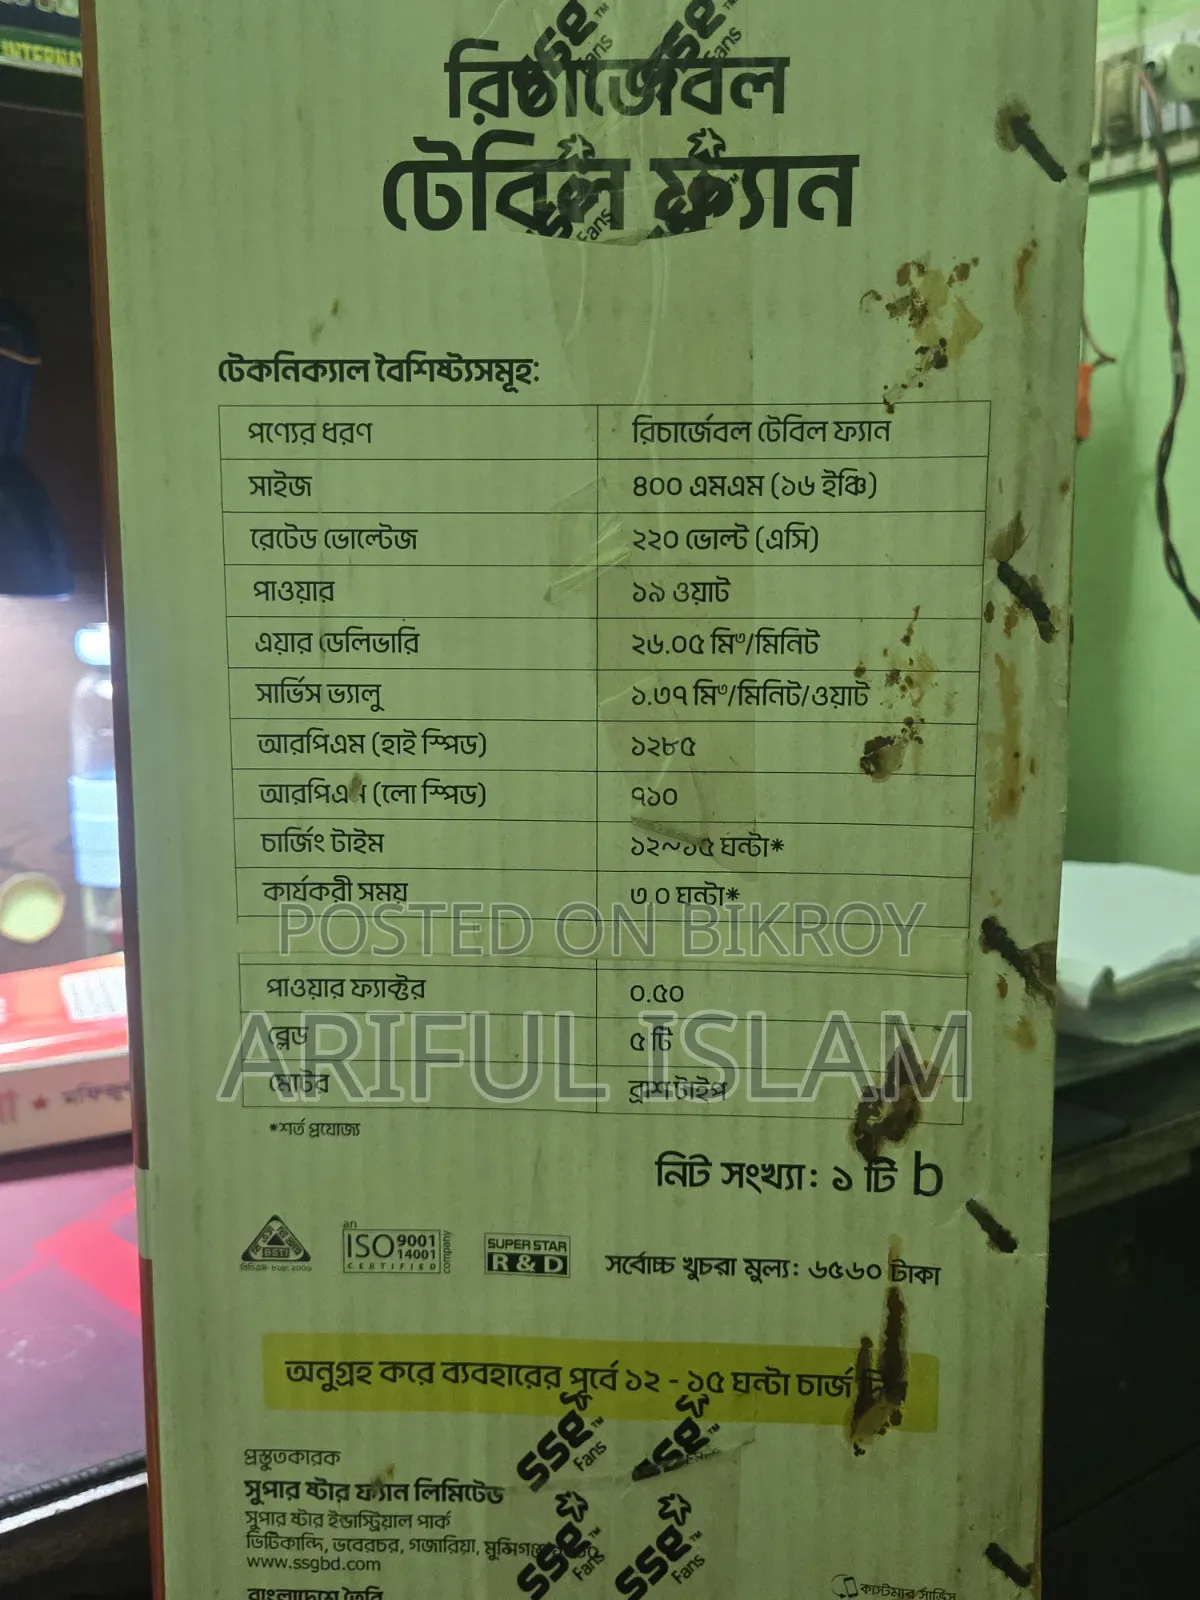 রিচার্জেবল
টেবিল ফ্যান
টেকনিক্যাল বৈশিষ্ট্যসমূহ:
পণ্যের ধরণ রিচার্জেবল টেবিল ফ্যান
সাইজ ৪০০ এমএম (১৬ ইঞ্চি)
রেটেড ভোল্টেজ ২২০ ভোল্ট (এসি)
পাওয়ার ১৯ ওয়াট
এয়ার ডেলিভারি ২৬.০৫ মি³/মিনিট
সার্ভিস ভ্যালু ১.৩৭ মি³/মিনিট/ওয়াট
আরপিএম (হাই স্পিড) ১২৮৫
আরপিএম (লো স্পিড) ৭১০
চার্জিং টাইম ১২~১৫ ঘন্টা*
কার্যকরী সময় ৩.০ ঘন্টা*
POSTED ON BIKROY
পাওয়ার ফ্যাক্টর ০.৫০
ARIFUL ISLAM
ব্লেড ৫ টি
মোটর ব্রাশ টাইপ
*শর্ত প্রযোজ্য
নিট সংখ্যা: ১ টি b
BSTI
an ISO 9001 14001 CERTIFIED company
SUPER STAR R & D
সর্বোচ্চ খুচরা মুল্য: ৬৫৬০ টাকা
অনুগ্রহ করে ব্যবহারের পূর্বে ১২ - ১৫ ঘন্টা চার্জ
প্রস্তুতকারক
সুপার ষ্টার ফ্যান লিমিটেড
সুপার ষ্টার ইন্ডাস্ট্রিয়াল পার্ক
ভিটিকান্দি, ভবেরচর, গজারিয়া,
www.ssgbd.com
বাংলাদেশে তৈরি
কাস্টমার সার্ভিস
SSG Fans
SSG Fans
SSG Fans
SSG Fans